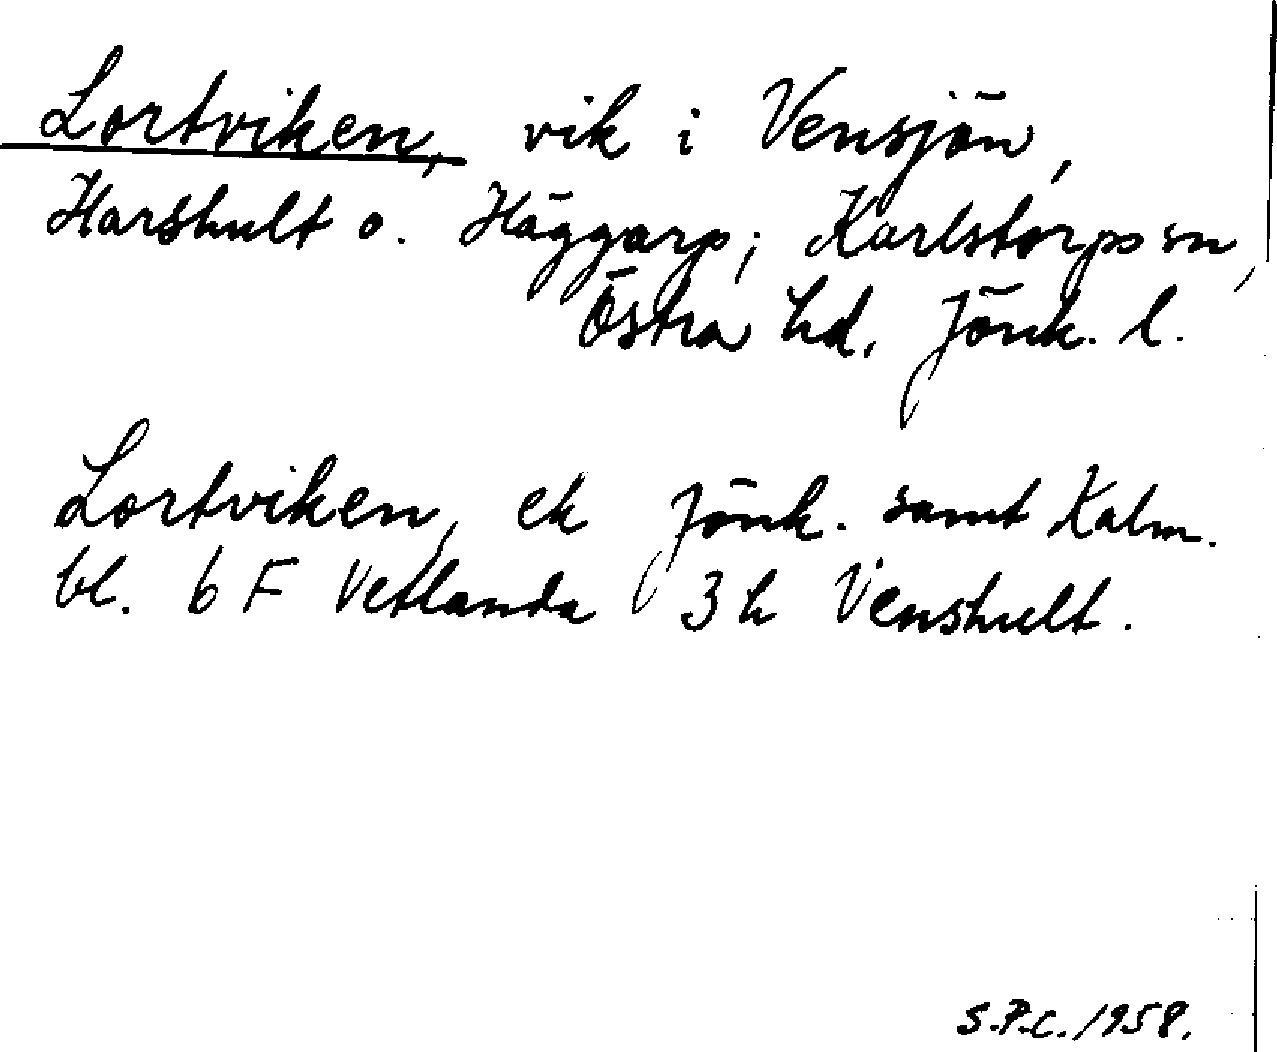 Lortviken, vik i Vensjön,
Harshult o. Häggarp; Karlstorps sn,
Östra hd. Jönk. l.
Lortviken, ek Jönk. samt Kalm.
bl. 6 F Vetlanda 3 h Venshult.
S.P.C. 1958.